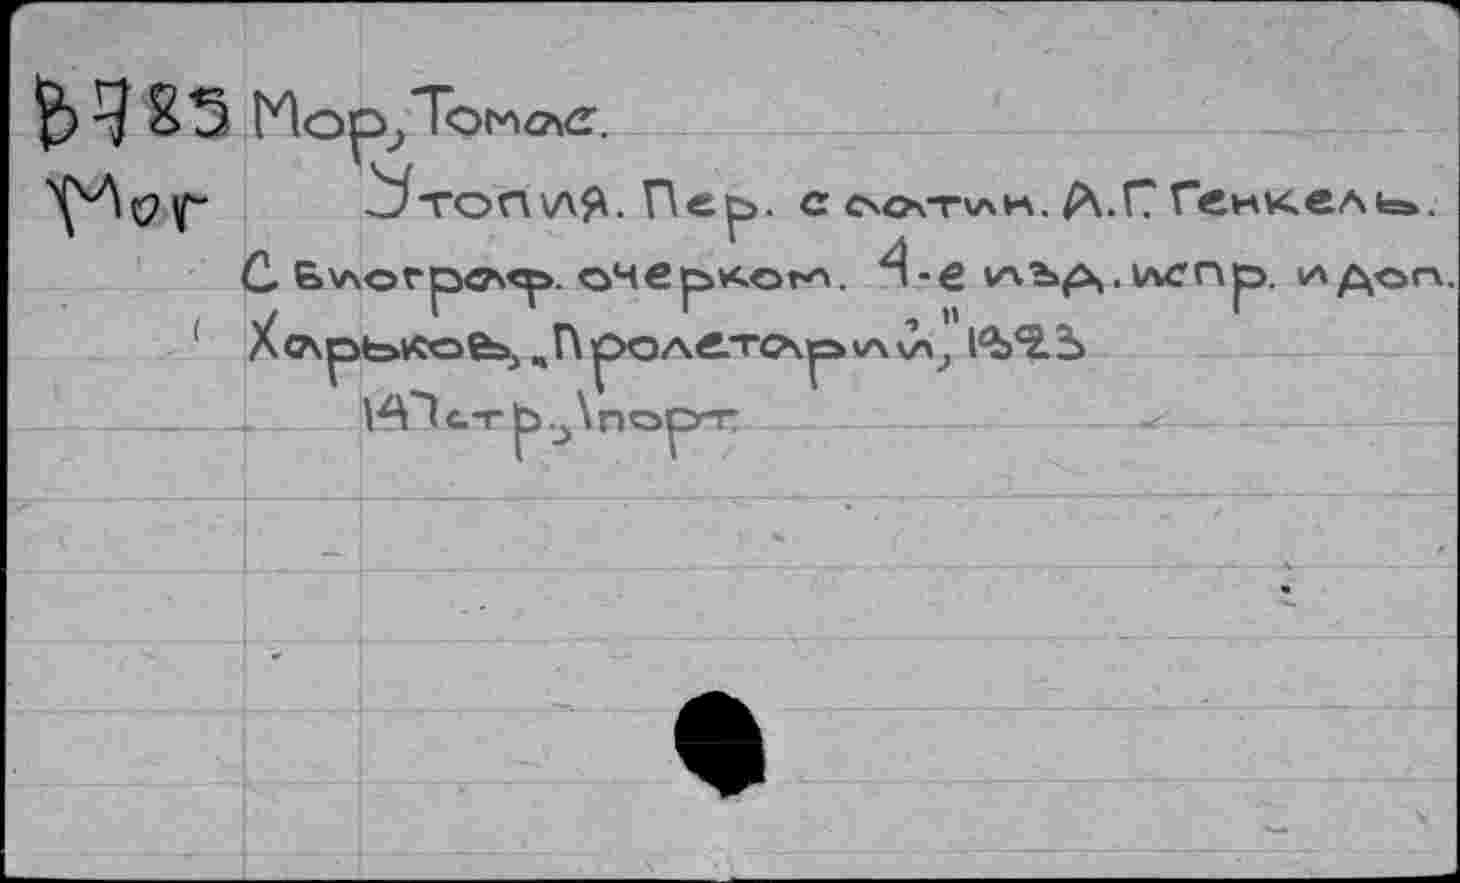 Мор, Томас.
Мог Утопия. Пер. с латин. А.Г. Генкель.
С биограф. очерком. 4-е изд. испр. и доп.
Харьков, „Пролетарий," 1923
147 стр., 1 порт